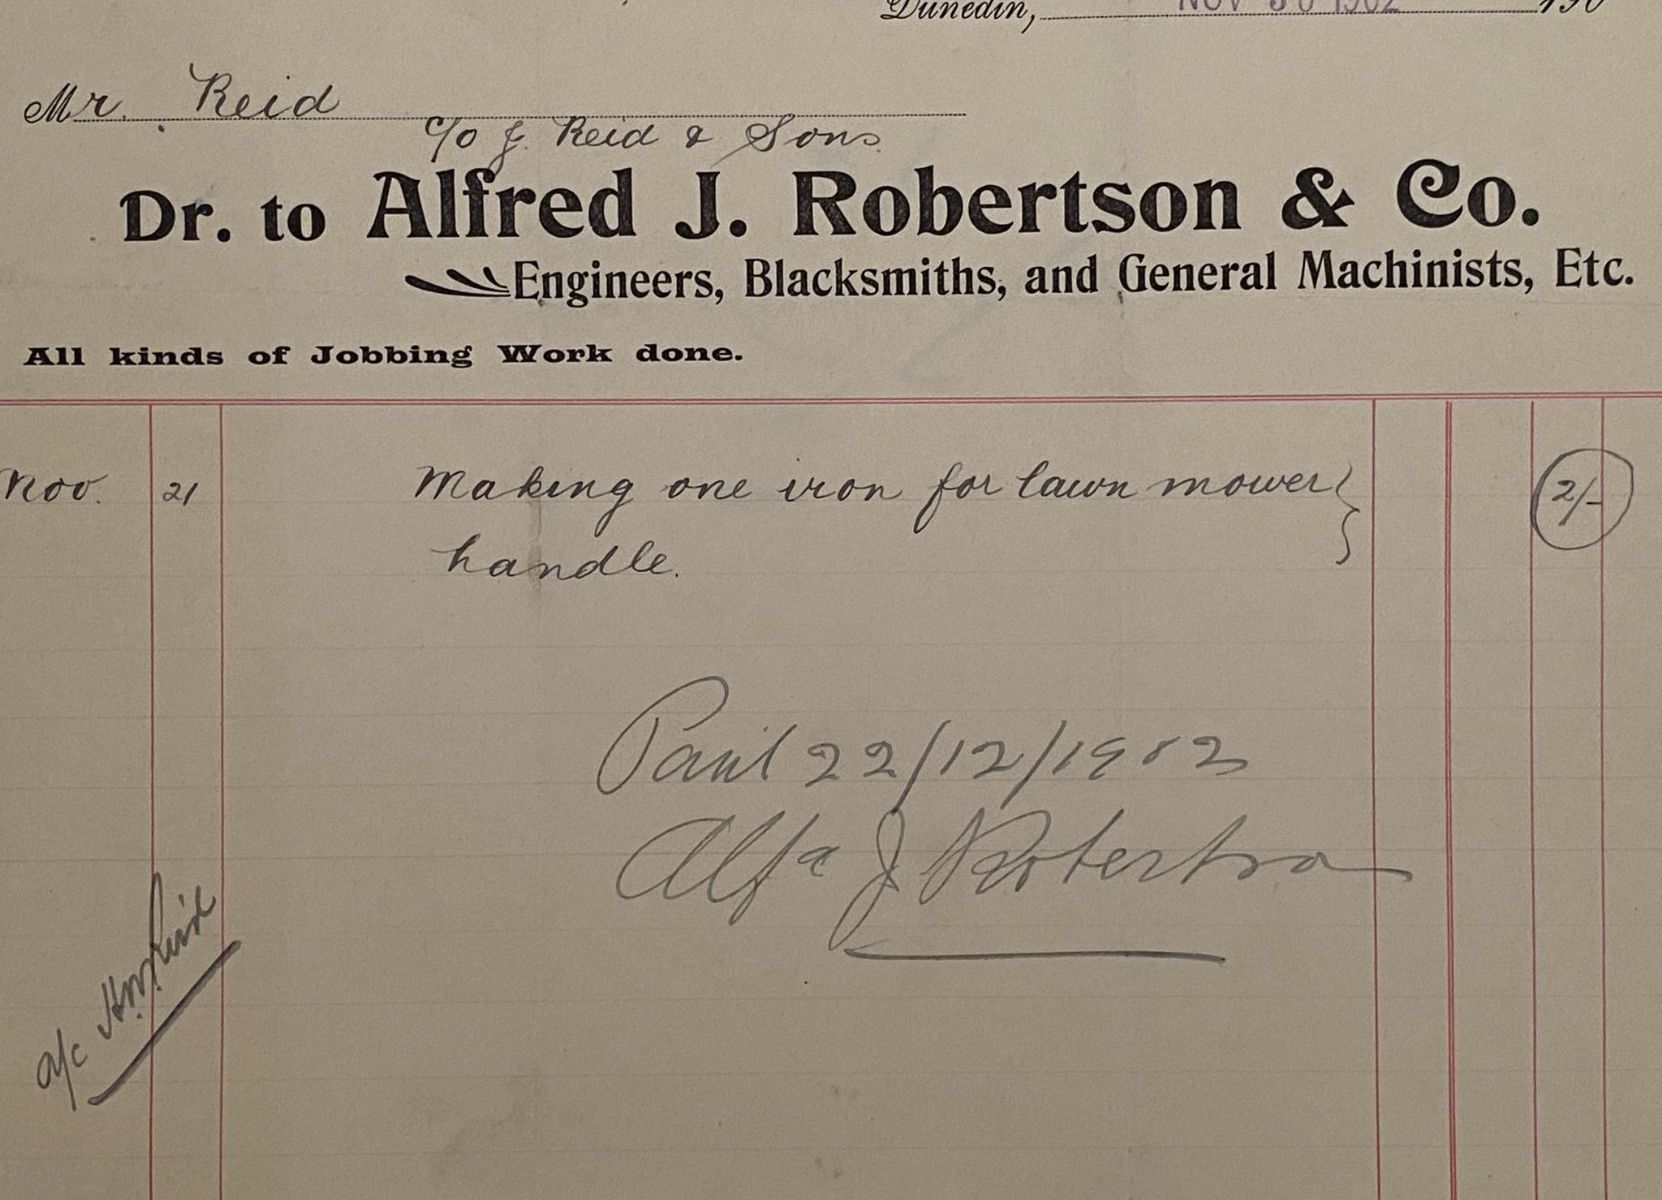 Dunedin, NOV 30 1902 190
Mr. Reid
c/o J. Reid & Sons.
Dr. to Alfred J. Robertson & Co.
Engineers, Blacksmiths, and General Machinists, Etc.
All kinds of Jobbing Work done.
Nov. 21 Making one iron for lawn mower 2/-
handle.
Paid 22/12/1902
Alfd J Robertson
a/c Reid